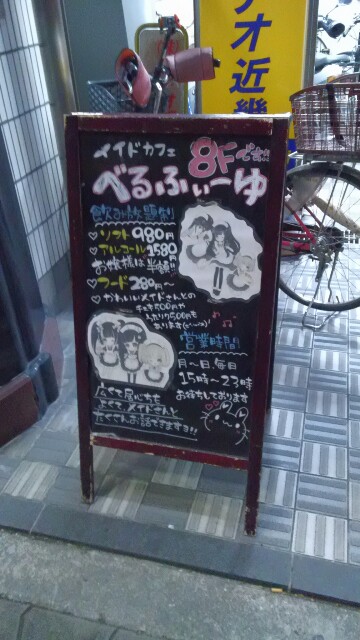 オ近畿
メイドカフェ
8Fです!!
べるふぃーゆ
飲み放題制
♡ソフト980円
♡アルコール1580円
お嬢様は半額!!
♡フード280円~
♡かわいいメイドさんとの
チェキ500円や
あります
営業時間
月~日、毎日
15時~23時
お待ちしております
広くて居心地も
よくて、メイドさんと
たくさんお話できますよ!!